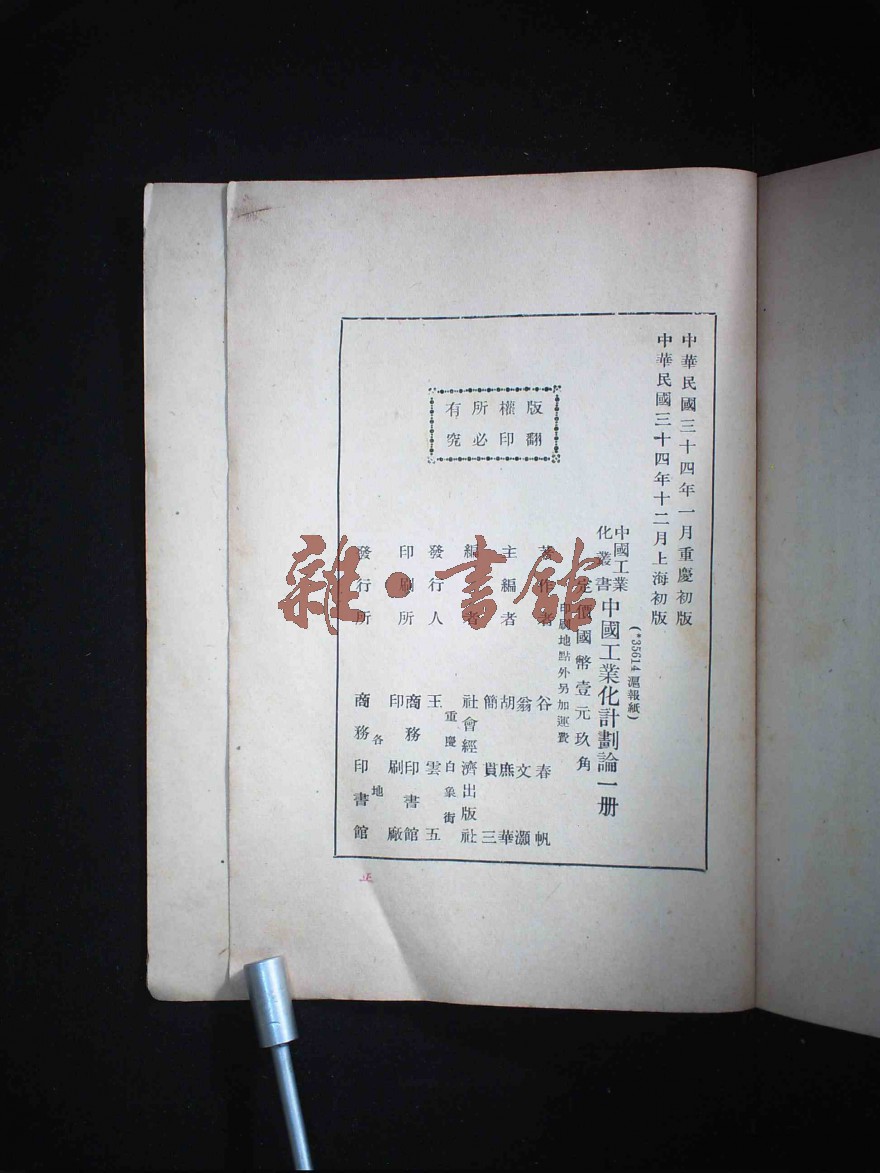 中華民國三十四年一月重慶初版
中華民國三十四年十二月上海初版
(*35614 滬報紙)
中國工業
化叢書
中國工業化計劃論一册
定價國幣壹元玖角
印刷地點外另加運費
著作者 谷春帆
主編者 翁文灝
胡庶華
簡貫三
編者 社會經濟出版社
發行人 王雲五
重慶白象街
印刷所 商務印書館
印刷廠
發行所 商務印書館
各地
版權所有
翻印必究
雜·書館
正